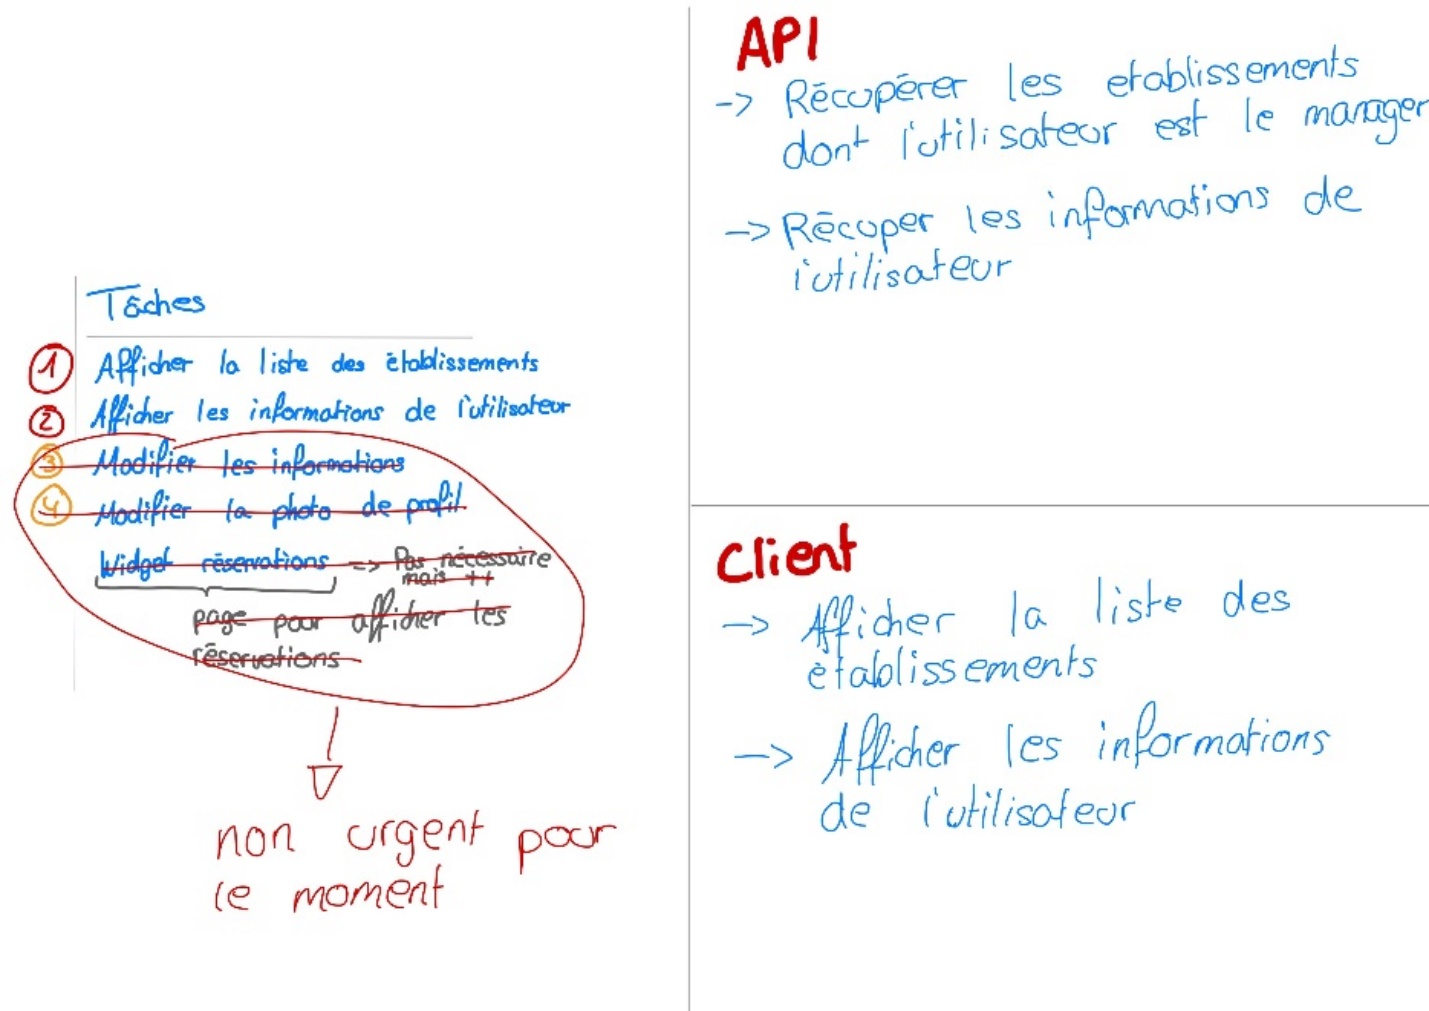 Tâches
1 Afficher la liste des établissements
2 Afficher les informations de l'utilisateur
3 Modifier les informations
4 Modifier la photo de profil
Widget réservations => Pas nécessaire
mais ++
page pour afficher les
réservations
non urgent pour
le moment
API
-> Récupérer les etablissements
dont l'utilisateur est le manager
-> Récuper les informations de
l'utilisateur
Client
-> Afficher la liste des
établissements
-> Afficher les informations
de l'utilisateur